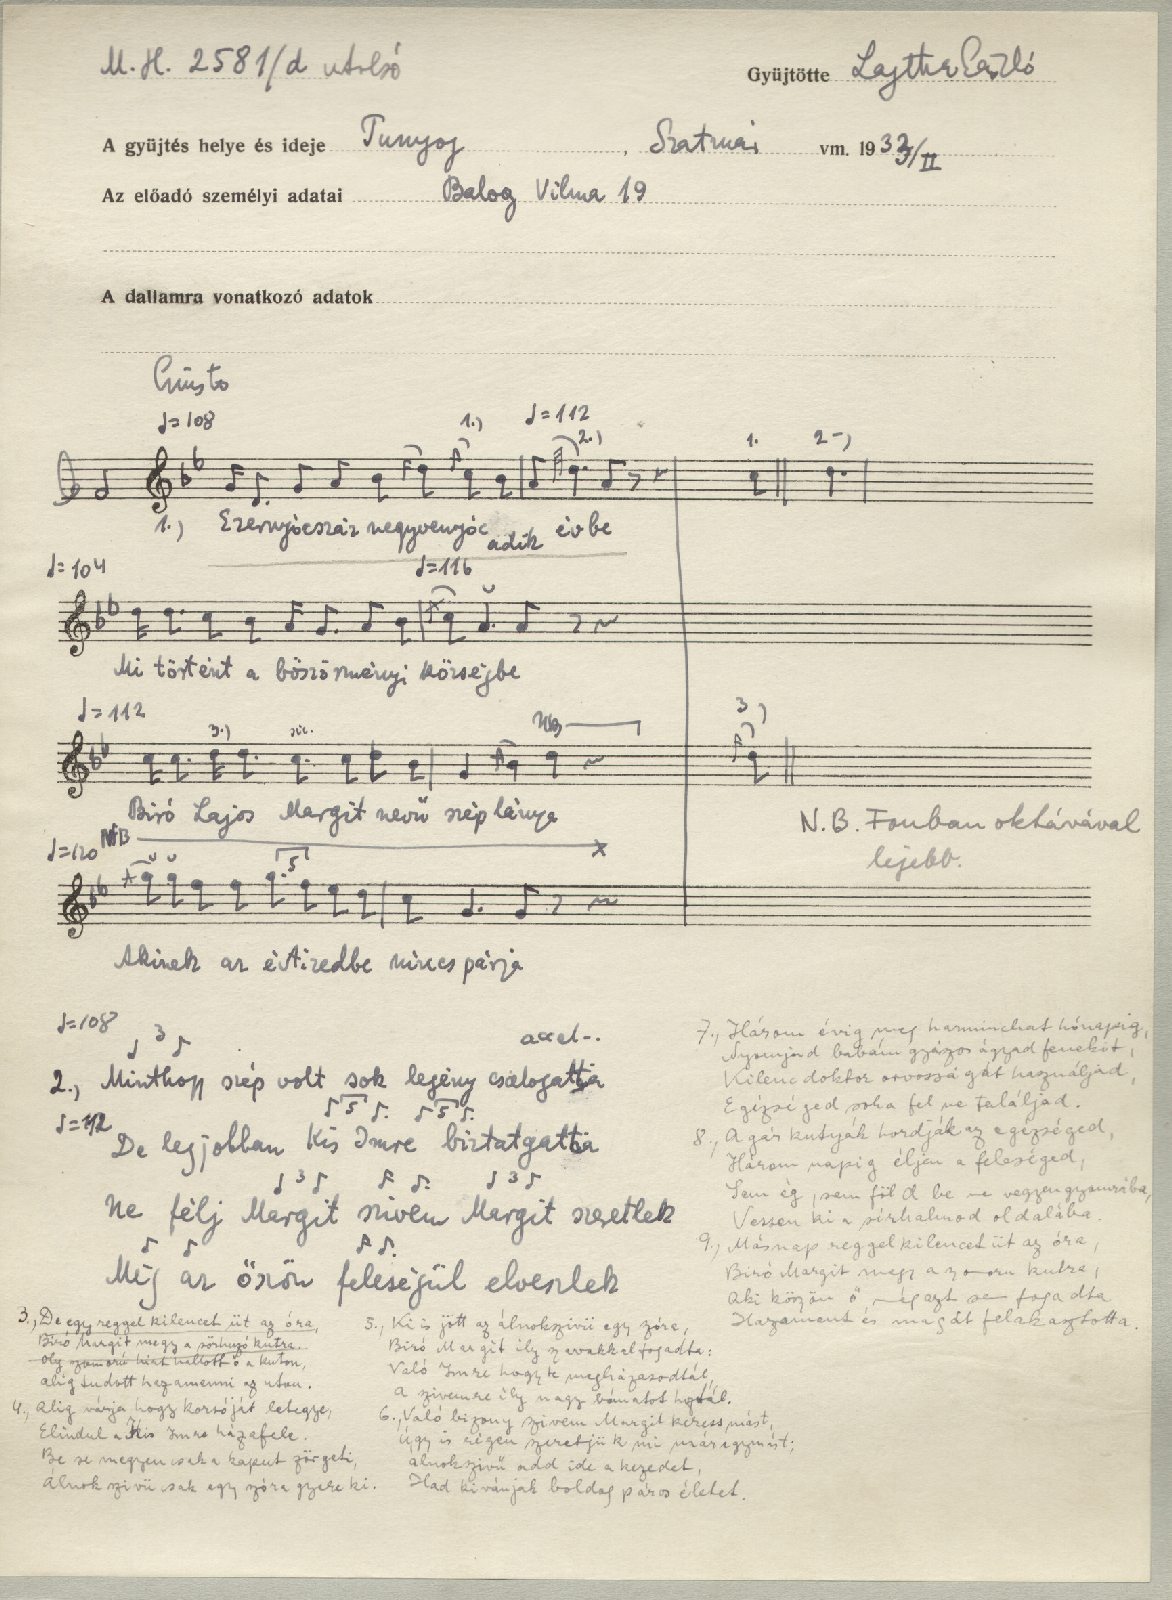 M. H. 2581/d utolsó
Gyüjtötte Lajtha László
A gyüjtés helye és ideje Tunyog, Szatmár vm. 1932/II
Az előadó személyi adatai Balog Vilma 19
A dallamra vonatkozó adatok
Giusto
♩=108
1.)
♩=112
2.)
1.
2-)
1.) Ezernyócszáz negyvenyóc
adik évbe
♩=104
♩=116
Mi történt a böszörményi községbe
♩=112
3.)
sic.
NB
3)
Biró Lajos Margit nevű szép lánya
N.B. Fonban oktávával
lejebb.
♩=120
NB
5
Akinek az évtizedbe nincs párja
♩=108
3
accel-.
2., Minthogy szép volt sok legény csalogattja
♩=112
5 5
De legjobban Kis Imre biztatgattja
3 3
Ne félj Margit szivem Margit szeretlek
Még az őszön feleségül elveszlek
3., De egy reggel kilencet üt az óra,
Biró Margit megy a sörhuzó kutra
Oly szomorú hírt hallott ő a kuton,
alig tudott hazamenni az uton.
4., Alig várja hogy korsóját letegye,
Elindul a Kis Imre házafele.
Be se megyen csak a kaput zörgeti,
Álnok szivü csak egy szóra gyere ki.
5., Ki is jött az álnokszivü egy szóra,
Biró Margit ily szavakkal fogadta:
Való Imre hogy te megházasodtál,
A szivemre ily nagy bánatot hoztál.
6., Való bizony szivem Margit keress mást,
Úgy is régen szeretjük mi már egymást;
álnokszivü add ide a kezedet,
Had kivánjak boldog páros életet.
7., Három évig meg harminchat hónapig,
Nyomjad babám gyászos ágyad fenekit,
Kilenc doktor orvosságát használjad,
Egézséged soha fel ne találjad.
8., A gár kutyák hordják az egézséged,
Három napig éljen a feleséged,
Sem ég, sem föld be ne vegyen gyomrába,
Vessen ki a sirhalmod oldalába.
9., Másnap reggel kilencet üt az óra,
Biró Margit megy a szomoru kutra,
Aki köszön ő még azt se fogadta
Hazament és magát felakasztotta.